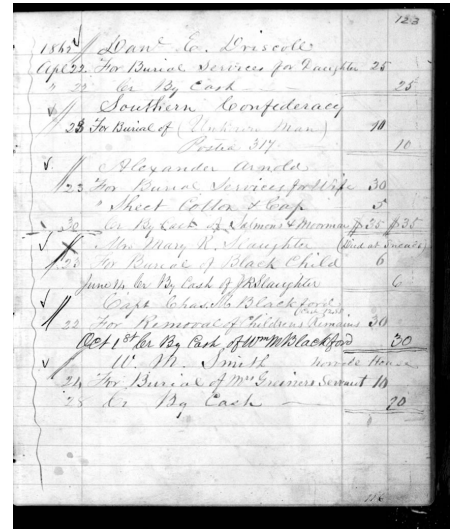 123
1862 Danl E. Driscole
Apl 22 For Burial Services for Daughter 25
" 22 Cr By Cash 25
Southern Confederacy
23 For Burial of (Unknown Man) 10
Posted 317 10
Alexander Arnold
23 For Burial Services for Wife 30
" Sheet Collar & Cap 5
30 Cr By Cash of Salmons & Moorman $35 $35
Mrs Mary R. Slaughter (Died at
23 For Burial of Black Child 6
June 14 Cr By Cash of J R Slaughter 6
Capt Chas. M Blackford
22 For Removal of Childrens Remains 30
Oct 1st Cr By Cash of Wm M Blackford 30
W. M. Smith Norvele House
24 For Burial of Mrs Servant 14
28 Cr By Cash 20